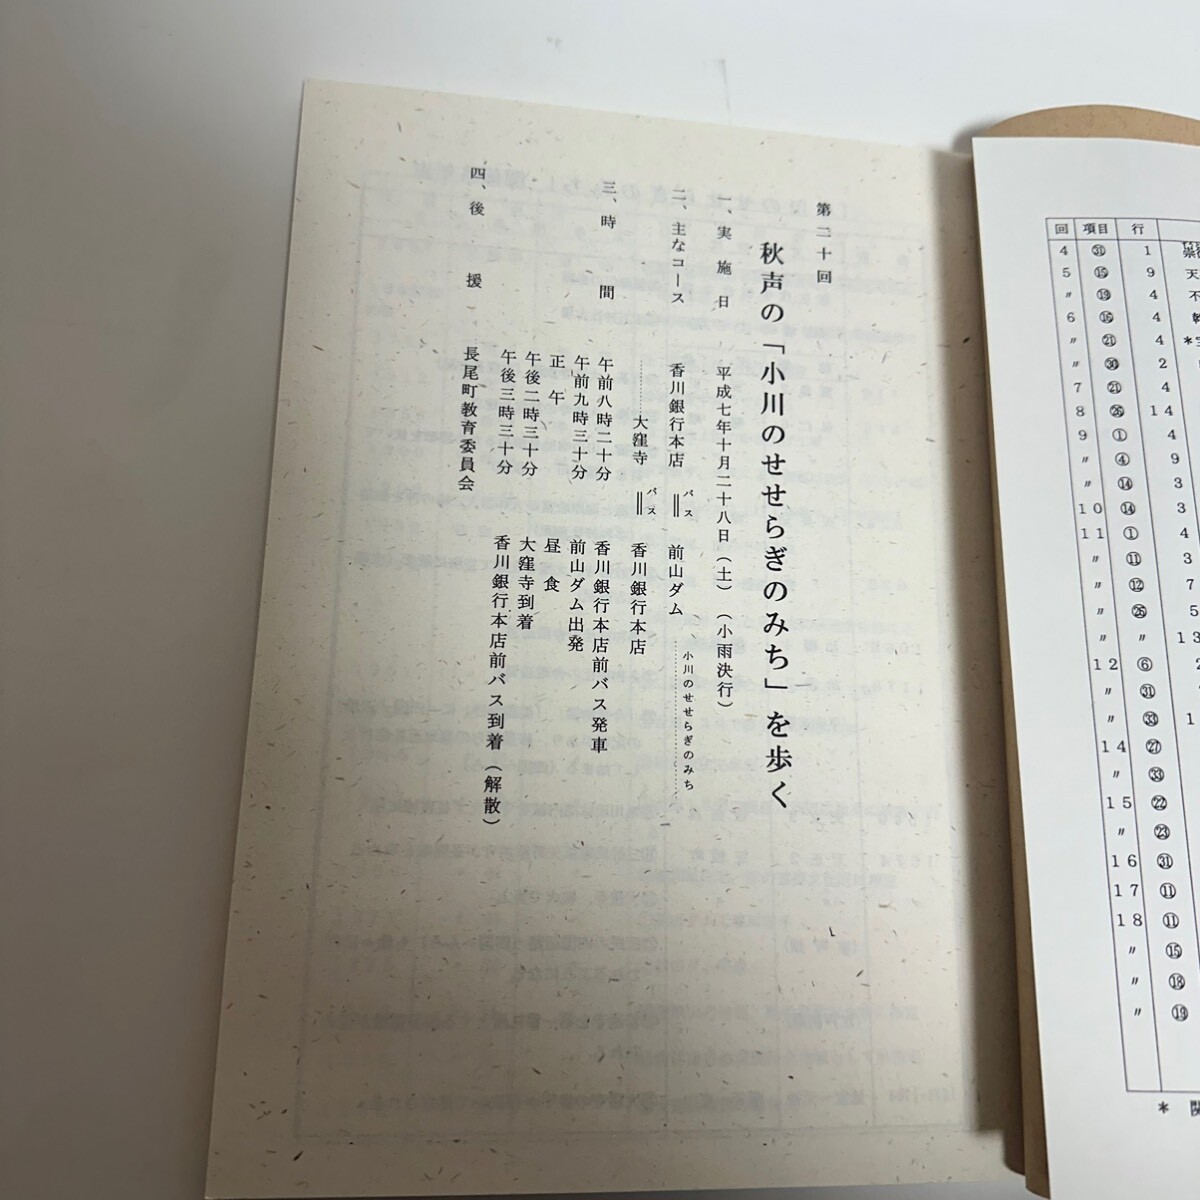 第二十回
秋声の「小川のせせらぎのみち」を歩く
一、実施日　平成七年十月二十八日（土）（小雨決行）
二、主なコース　香川銀行本店＝バス＝前山ダム……小川のせせらぎのみち……
……大窪寺＝バス＝香川銀行本店
三、時間　午前八時二十分　香川銀行本店前バス発車
午前九時三十分　前山ダム出発
正午　昼食
午後二時三十分　大窪寺到着
午後三時三十分　香川銀行本店前バス到着（解散）
四、後援　長尾町教育委員会
回 項目 行
4 ㉛ 1
5 ⑮ 9 天
〃 ⑲ 4 不
6 ⑯ 4
〃 ㉑ 4
〃 ㉚ 2
7 ㉑ 4
8 ㉖ 14
9 ① 4
〃 ④ 9
〃 ⑭ 3
10 ⑭ 3
11 ① 4
〃 ⑪ 3
〃 ⑫ 7
〃 ㉖ 5
〃 〃 13
12 ⑥
〃 ㉛
〃 ㉝
14 ㉗
〃 ㉝
15 ㉒
〃 ㉓
16 ㉛
17 ⑪
18 ⑪
〃 ⑮
〃 ⑱
〃 ⑲